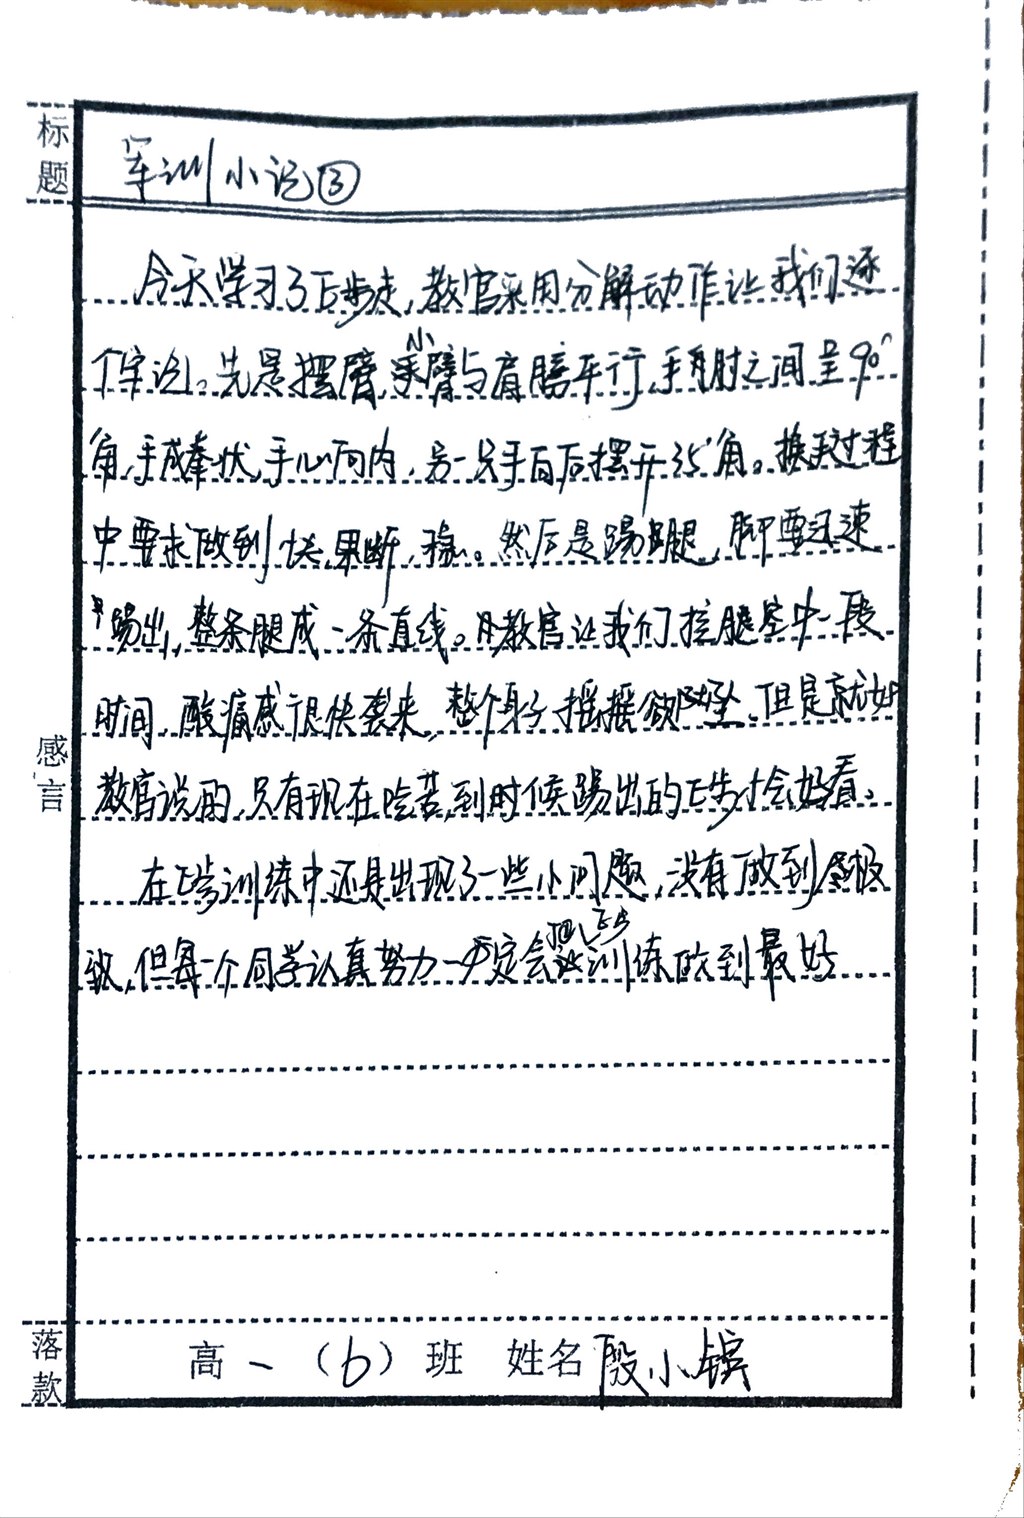 标题
军训小记③
今天学习了正步走，教官采用分解动作让我们逐
个学训。先是摆臂，小臂与肩膀平行，手肘之间呈90°
角，手成拳状，手心向内，另一只手向后摆开35°角。换手过程
中要求做到快，果断，稳。然后是踢腿，脚要迅速
踢出，整条腿成一条直线。教官让我们控腿空中一段
时间，酸痛感很快袭来，整个身子摇摇欲坠。但是就如
教官说的，只有现在吃苦，到时候踢出的正步才会好看。
感言
在正步训练中还是出现了一些小问题，没有做到
致，但每一个同学认真努力一定会把正步训练做到最好
落款
高一（6）班 姓名 殷小